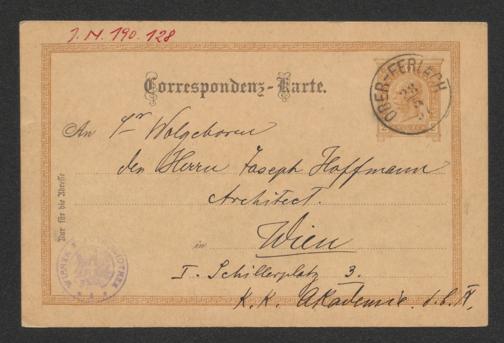 J. N. 190.128
Correspondenz-Karte.
OBER-FERLACH
An Sr Wolgeboren
den Herrn Joseph Hoffmann
Architect.
Nur für die Adresse
in Wien
I. Schillerplatz 3.
K. K. Akademie. d. b. K.